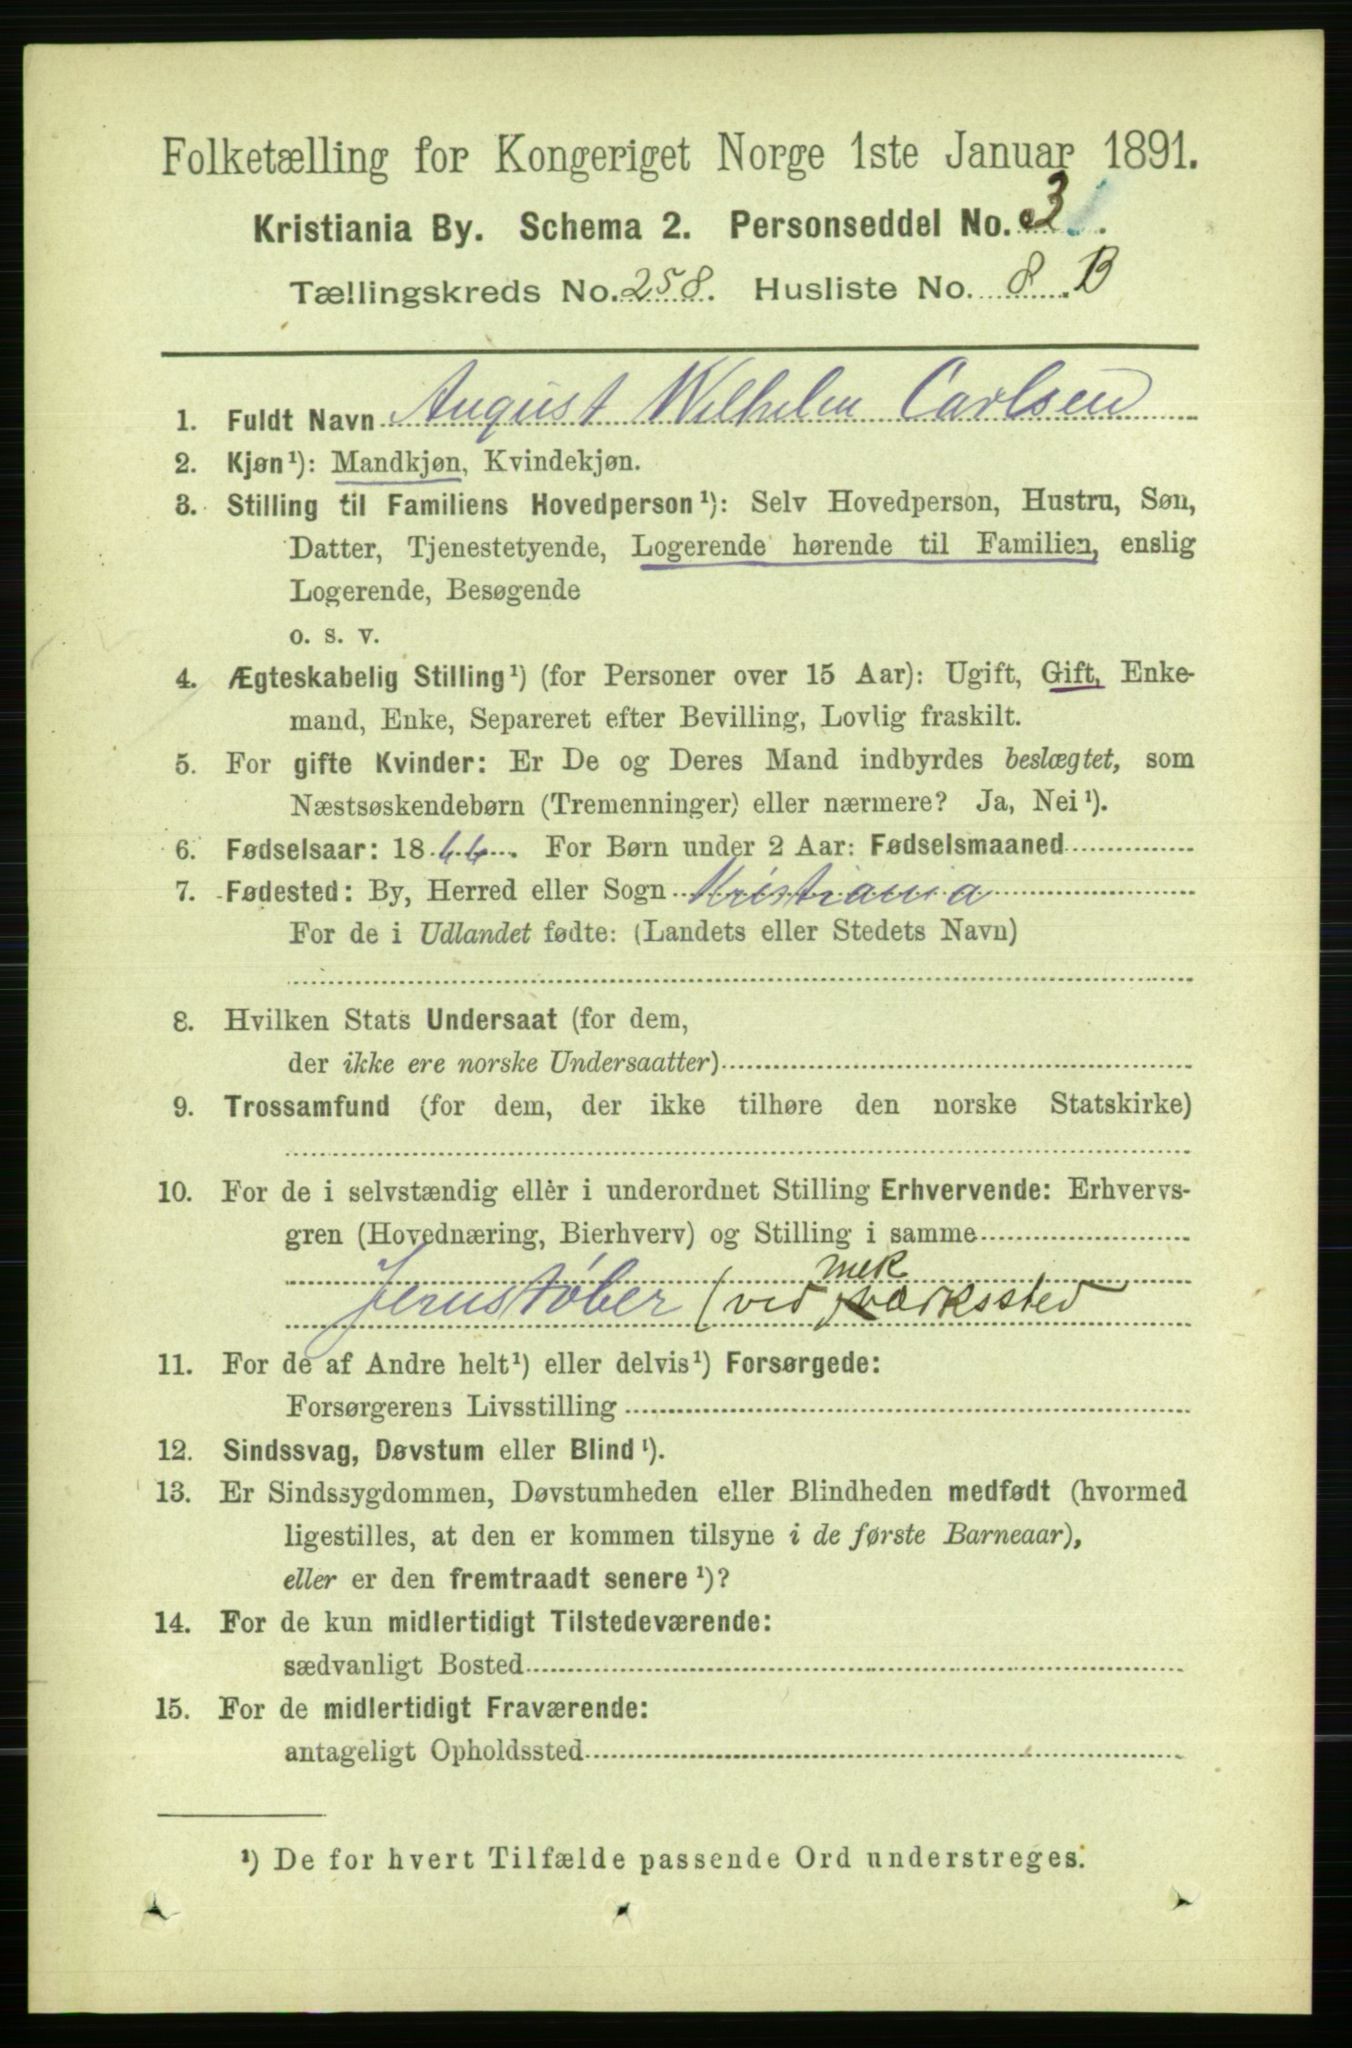 Folketælling for Kongeriget Norge 1ste Januar 1891.
Kristiania By. Schema 2. Personseddel No. 3.
Tællingskreds No. 258. Husliste No. 8. B
1. Fuldt Navn August Wilhelm Carlsen
2. Kjøn¹): Mandkjøn, Kvindekjøn.
3. Stilling til Familiens Hovedperson¹): Selv Hovedperson, Hustru, Søn,
Datter, Tjenestetyende, Logerende hørende til Familien, enslig
Logerende, Besøgende
o. s. v.
4. Ægteskabelig Stilling¹) (for Personer over 15 Aar): Ugift, Gift, Enke-
mand, Enke, Separeret efter Bevilling, Lovlig fraskilt.
5. For gifte Kvinder: Er De og Deres Mand indbyrdes beslægtet, som
Næstsøskendebørn (Tremenninger) eller nærmere? Ja, Nei¹).
6. Fødselsaar: 18 . For Børn under 2 Aar: Fødselsmaaned
7. Fødested: By, Herred eller Sogn Kristiania
For de i Udlandet fødte: (Landets eller Stedets Navn)
8. Hvilken Stats Undersaat (for dem,
der ikke ere norske Undersaatter)
9. Trossamfund (for dem, der ikke tilhøre den norske Statskirke)
10. For de i selvstændig eller i underordnet Stilling Erhvervende: Erhvervs-
gren (Hovednæring, Bierhverv) og Stilling i samme
mek
Jernstøber (ved værksted
11. For de af Andre helt¹) eller delvis¹) Forsørgede:
Forsørgerens Livsstilling
12. Sindssvag, Døvstum eller Blind¹).
13. Er Sindssygdommen, Døvstumheden eller Blindheden medfødt (hvormed
ligestilles, at den er kommen tilsyne i de første Barneaar),
eller er den fremtraadt senere¹)?
14. For de kun midlertidigt Tilstedeværende:
sædvanligt Bosted
15. For de midlertidigt Fraværende:
antageligt Opholdssted
¹) De for hvert Tilfælde passende Ord understreges.